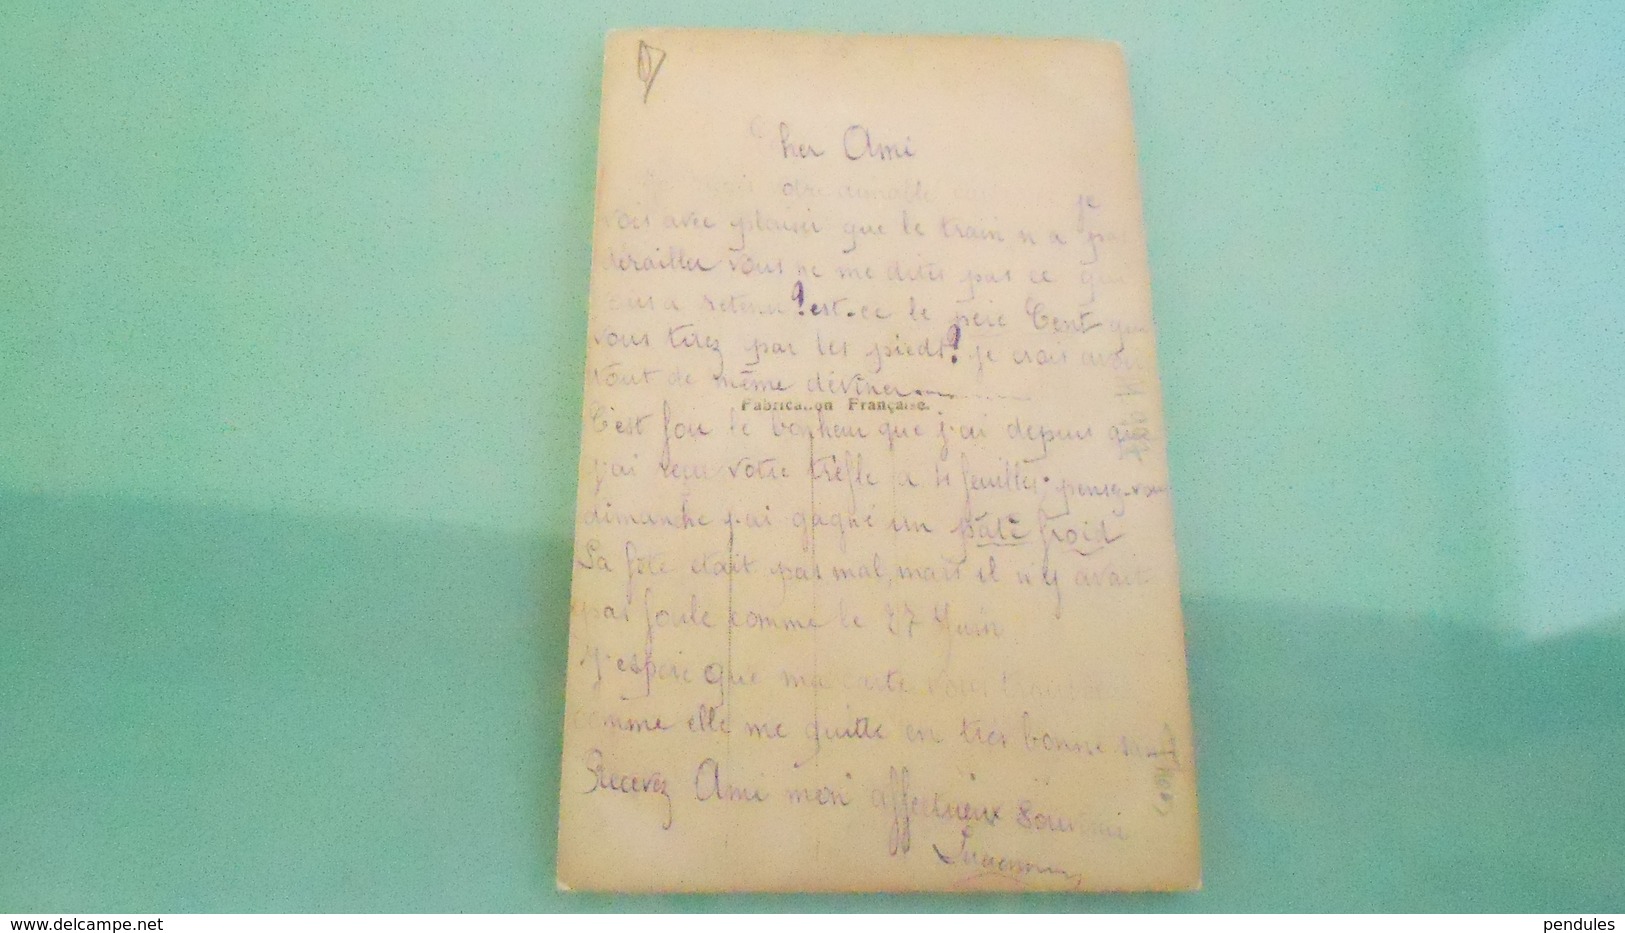 Cher Ami
votre aimable
je
vois avec plaisir que le train n a pas
dérailler vous ne me dites pas ce que
vous a retenu? est-ce le père Cent que
vous tirez par les pieds? je crois avoir
tout de même déviner
Fabrication Française.
C'est fou le bonheur que j'ai depuis que
j'ai reçu votre trèfle a 4 feuilles; pensez-vous
dimanche j'ai gagné un pâté froid
La fête etait pas mal, mais il n'y avait
pas foule comme le 27 Juin
J'espere que ma carte vous trouvera
comme elle me quitte en très bonne
Recevez Ami mon affectueux Souvenir
delcampe.net
pendules